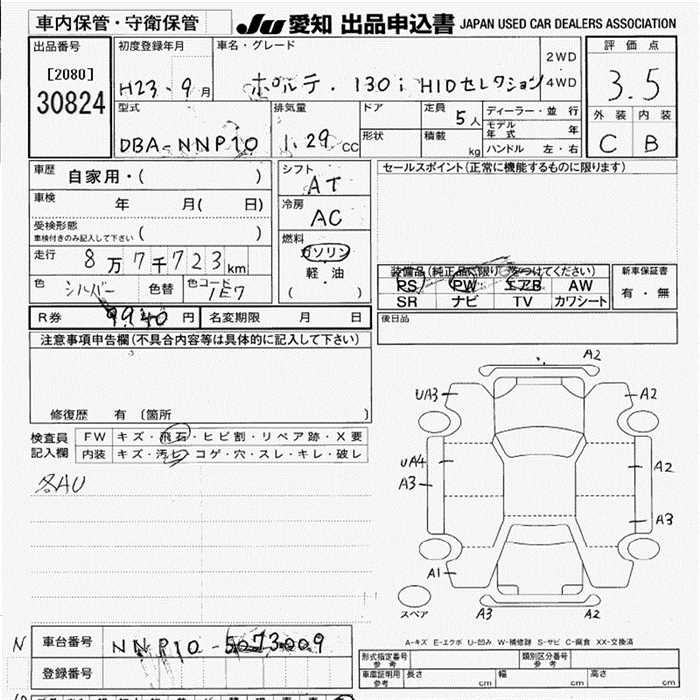 車内保管・守衛保管
JU 愛知 出品申込書 JAPAN USED CAR DEALERS ASSOCIATION
出品番号
[2080]
30824
初度登録年月
H23・9月
車名・グレード
ポルテ・130i HIDセレクション
2WD
4WD
評価点
3.5
外装 内装
C B
型式
DBA-NNP10
排気量
1.29cc
ドア
形状
定員 5人
積載 kg
ディーラー・並行
モデル年式 年
ハンドル 左・右
車歴 自家用・( )
車検 年 月( 日)
受検形態
車検付きのみ記入して下さい ( )
走行 8万7千723km
色 シルバー 色替 色コード 1E7
シフト
AT
冷房
AC
燃料
ガソリン
軽・油
( )
セールスポイント(正常に機能するものに限ります)
装備品(純正品に限り○をつけてください)
PS PW エアB AW
SR ナビ TV カワシート
新車保証書
有・無
後日品
R券 9940円 名変期限 月 日
注意事項申告欄(不具合内容等は具体的に記入して下さい)
修復歴 有 〔箇所 〕
検査員記入欄
FW キズ・飛石・ヒビ割・リペア跡・X要
内装 キズ・汚レ・コゲ・穴・スレ・キレ・破レ
各AU
A2
UA3 A2
UA4 A2
A3
A3
A1
スペア A3 A2
A-キズ E-エクボ U-凹み W-補修跡 S-サビ C-腐食 XX-交換済
N 車台番号 NNP10-5073009
登録番号
形式指定番号 参考 類別区分番号 参考
車庫証明用 参考 長さ cm 幅 cm 高さ cm